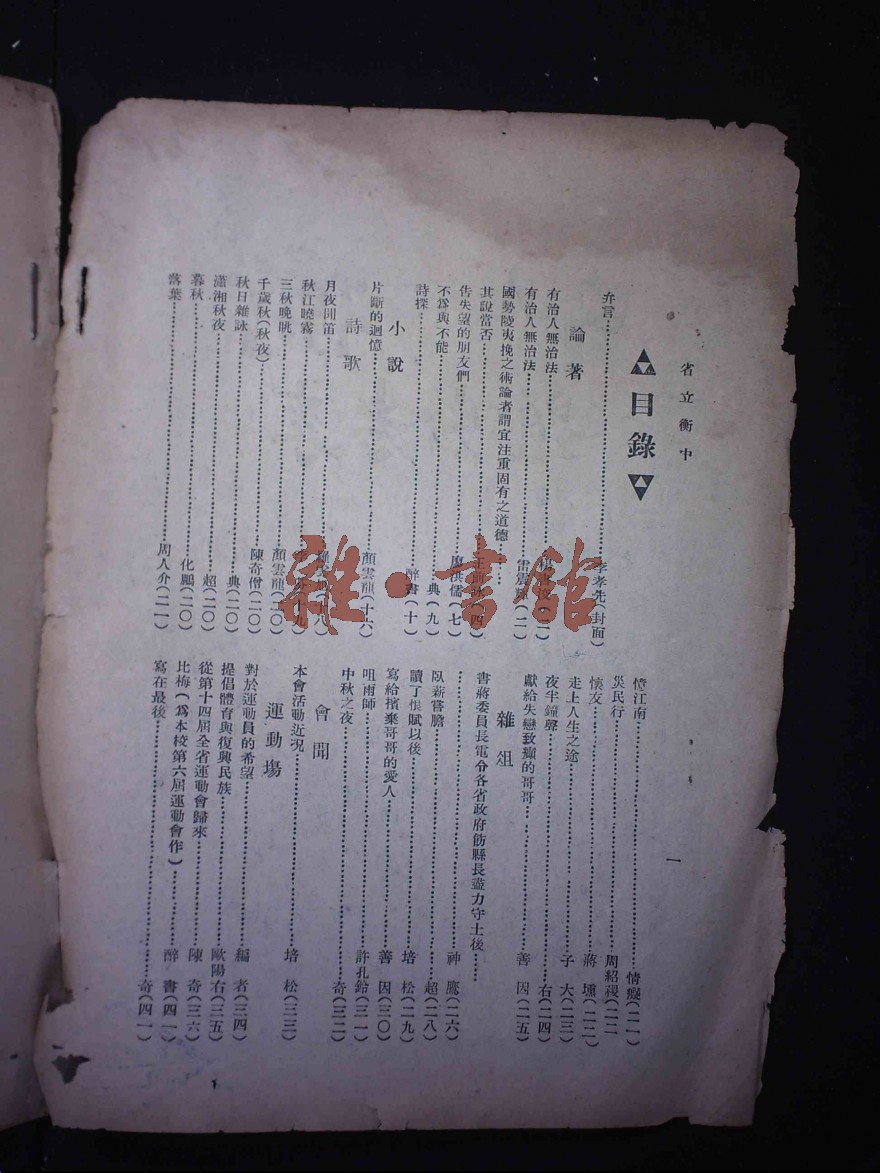 省立衡中
目錄
弁言……李孝先(封面)
論著
有治人無治法……(二)
有治人無治法……雷震(二)
國勢陵夷挽之術論者謂宜注重固有之道德……
其說當否……(四)
告失望的朋友們……廖洪儒(七)
不為與不能……典(九)
詩探……醉書(十)
小說
片斷的迴憶……顏雲龍(十六)
詩歌
月夜聞笛……(十八)
秋江曉霧……(十九)
三秋晚眺……顏雲龍(二〇)
千歲秋(秋夜)……陳奇僧(二〇)
秋日雜詠……典(二〇)
瀟湘秋夜……超(二〇)
暮秋……化鵬(二〇)
落葉……周人介(二一)
憶江南……情癡(二一)
災民行……周紹禝(二二
懷友……蔣壎(二二)
走上人生之途……子大(二三)
夜半鐘聲……右(二四)
獻給失戀致癲的哥哥……善因(二五)
雜俎
書蔣委員長電分各省政府飭縣長盡力守土後……
……神鷹(二六)
臥薪嘗膽……超(二八)
讀了恨賦以後……培松(二九)
寫給擯棄哥哥的愛人……善因(三〇)
咀雨師……許孔鈴(三一)
中秋之夜……奇(三二)
會聞
本會活動近況……培松(三三)
運動場
對於運動員的希望……編者(三四)
提倡體育與復興民族……歐陽右(三五)
從第十四屆全省運動會歸來……陳奇(三六)
比梅(為本校第六屆運動會作)……醉書(四一)
寫在最後……奇(四一)
一
雜·書館